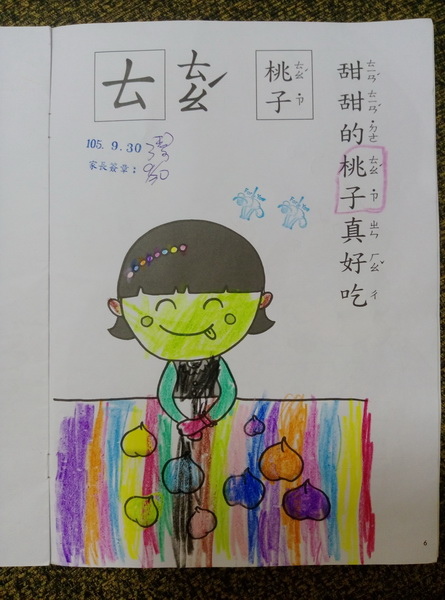 ㄊ
ㄊㄠˊ
桃ㄊㄠˊ子˙ㄗ
甜ㄊㄧㄢˊ甜ㄊㄧㄢˊ的˙ㄉㄜ桃ㄊㄠˊ子˙ㄗ真ㄓㄣ好ㄏㄠˇ吃ㄔ
105. 9. 30
家長簽章:
9/30
6